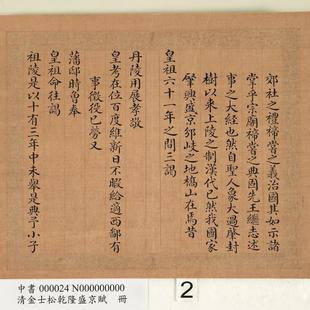 郊社之禮禘嘗之義治國其如示諸
掌乎宗廟禘嘗之典國先王繼志述
事之大經也然自聖人象大過肇封
樹以來上陵之制漢代已然我國家
肇興盛京邠岐之地橋山在焉昔
皇祖六十一年之間三謁
丹陵用展孝敬
皇考在位百度維新日不暇給適西鄙有
事徵役已勞又
藩邸時曾奉
皇祖命往謁
祖陵是以十有三年中未舉是典予小子
中書 000024 N000000000
清金士松乾隆盛京賦 冊
2